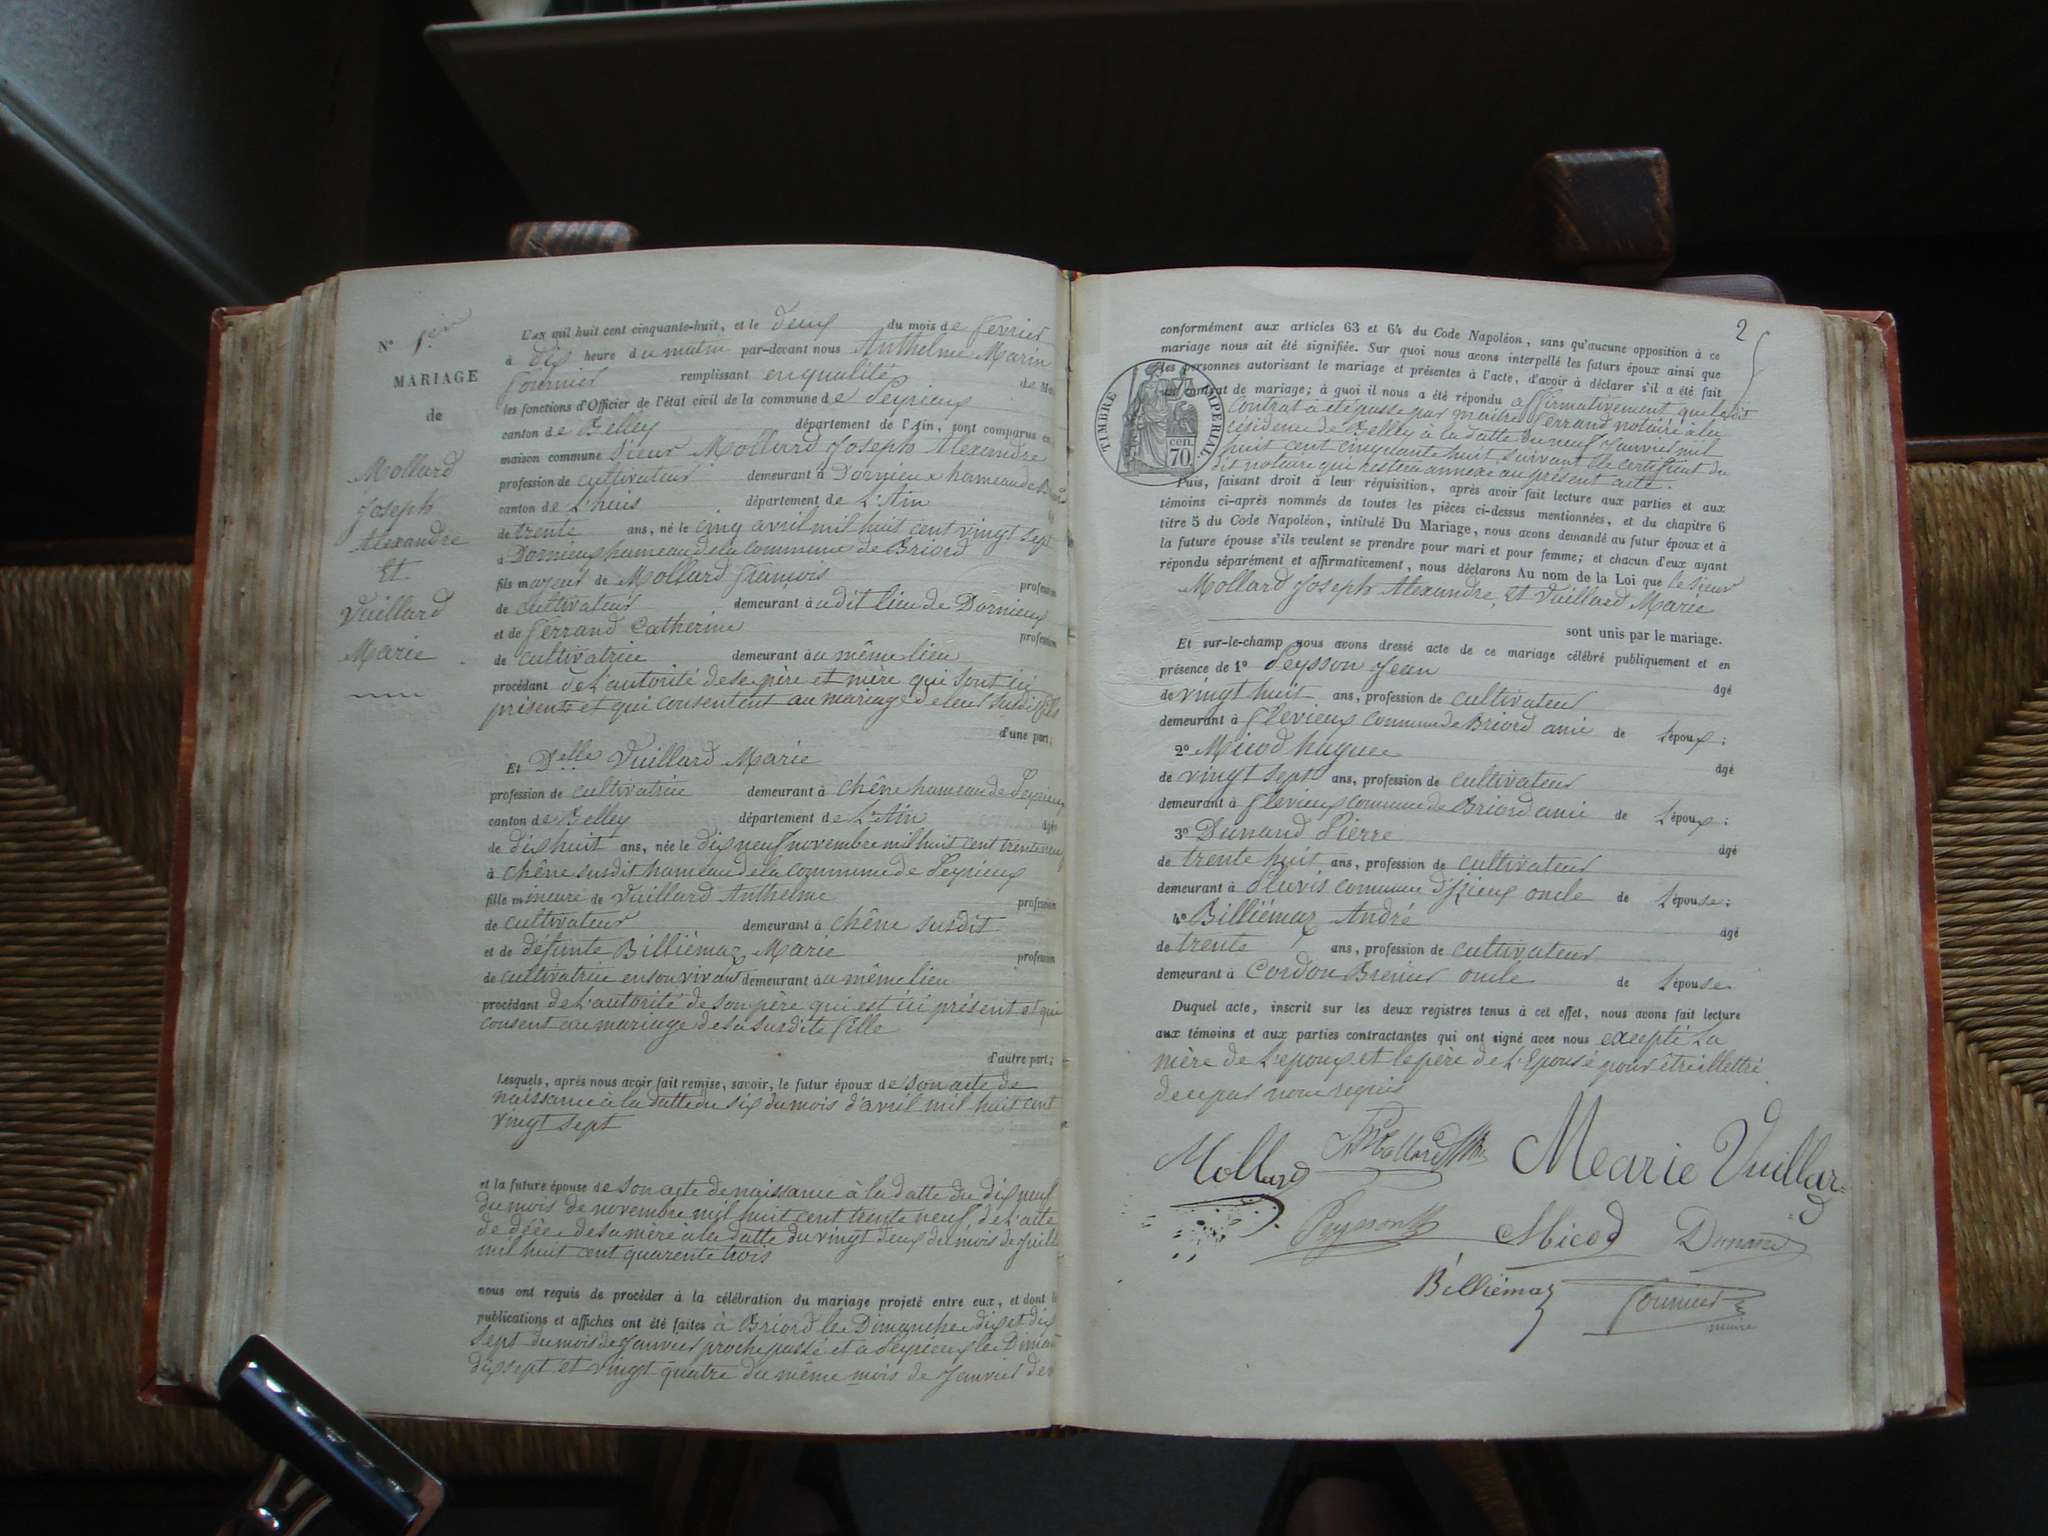 N° 1er
MARIAGE
de
Mollard
Joseph
Alexandre
Et
Vuillard
Marie
L'an mil huit cent cinquante-huit, et le deux du mois de février
à dix heure du matin par-devant nous Anthelme Marin
Fournier remplissant en qualité de Mai
les fonctions d'Officier de l'état civil de la commune de Peyrieux
canton de Belley département de l'Ain, sont comparus en
maison commune Sieur Mollard Joseph Alexandre
profession de cultivateur demeurant à Dornieux hameau de Briord
canton de L'huis département de L'Ain
de trente ans, né le cinq avril mil huit cent vingt sept
à Dornieux hameau de la commune de Briord
fils majeur de Mollard François profession
de cultivateur demeurant à udit lieu de Dornieux
et de Ferrand Catherine profession
de cultivatrice demeurant à u même lieu
procédant de L'autorité de se père et mère qui sont ici
présents et qui consentent au mariage de leur susdit fils
d'une part;
Et Delle Vuillard Marie
profession de cultivatrice demeurant à chêne hameau de Peyrieux
canton de Belley département de L'Ain âgée
de dix huit ans, née le dix neuf novembre mil huit cent trente neuf
à chêne susdit hameau de la commune de Peyrieux
fille mineure de Vuillard Anthelme profession
de cultivateur demeurant à chêne susdit
et de défunte Billiémaz Marie profession
de cultivatrice en son vivant demeurant à u même lieu
procédant de L'autorité de son père qui est ici présent et qui
consent au mariage de sa susdite fille
d'autre part;
Lesquels, après nous avoir fait remise, savoir, le futur époux de son acte de
naissance à la datte du six du mois d'avril mil huit cent
vingt sept
et la future épouse de son acte de naissance à la datte du dix neuf
du mois de novembre mil huit cent trente neuf, de L'acte
de décè de sa mère à la datte du vingt deux du mois de Juill
mil huit cent quarente trois
nous ont requis de procéder à la célébration du mariage projeté entre eux, et dont le
publications et affiches ont été faites à Briord les Dimanches dix et dix
sept du mois de Janvier proche passé et à Peyrieux les Diman
dix sept et vingt quatre du même mois de Janvier der
2
conformément aux articles 63 et 64 du Code Napoléon, sans qu'aucune opposition à ce
mariage nous ait été signifiée. Sur quoi nous avons interpellé les futurs époux ainsi que
les personnes autorisant le mariage et présentes à l'acte, d'avoir à déclarer s'il a été fait
un contrat de mariage; à quoi il nous a été répondu affirmativement que ledit
contrat a été passé par maitre Ferrand notaire à la
résidence de Belley à la datte du neuf Janvier mil
huit cent cinquante huit suivant le certificat du
dit notaire qui restera annexé au présent acte.
TIMBRE IMPERIAL
70 cen.
Puis, faisant droit à leur réquisition, après avoir fait lecture aux parties et aux
témoins ci-après nommés de toutes les pièces ci-dessus mentionnées, et du chapitre 6
titre 5 du Code Napoléon, intitulé Du Mariage, nous avons demandé au futur époux et à
la future épouse s'ils veulent se prendre pour mari et pour femme; et chacun d'eux ayant
répondu séparément et affirmativement, nous déclarons Au nom de la Loi que le Sieur
Mollard Joseph Alexandre, Et Vuillard Marie
sont unis par le mariage.
Et sur-le-champ nous avons dressé acte de ce mariage célébré publiquement et en
présence de 1° Peysson Jean âgé
de vingt huit ans, profession de cultivateur
demeurant à Flevieux commune de Briord ami de L'époux;
2° Micod hugues âgé
de vingt sept ans, profession de cultivateur
demeurant à Flevieux commune de Briord ami de L'époux;
3° Dunand Pierre âgé
de trente huit ans, profession de cultivateur
demeurant à Pluvis commune d'Izieux oncle de L'épouse;
4° Billiémaz André âgé
de trente ans, profession de cultivateur
demeurant à Cordon Brenier oncle de L'épouse
Duquel acte, inscrit sur les deux registres tenus à cet effet, nous avons fait lecture
aux témoins et aux parties contractantes qui ont signé avec nous excepté La
mère de L'epoux et le père de L'Epouse pour être illettré
de ce par nous requis
Mollard Mollard Marie Vuillar=
d
Peysson Micod Dunand
Billiémaz Fournier
maire